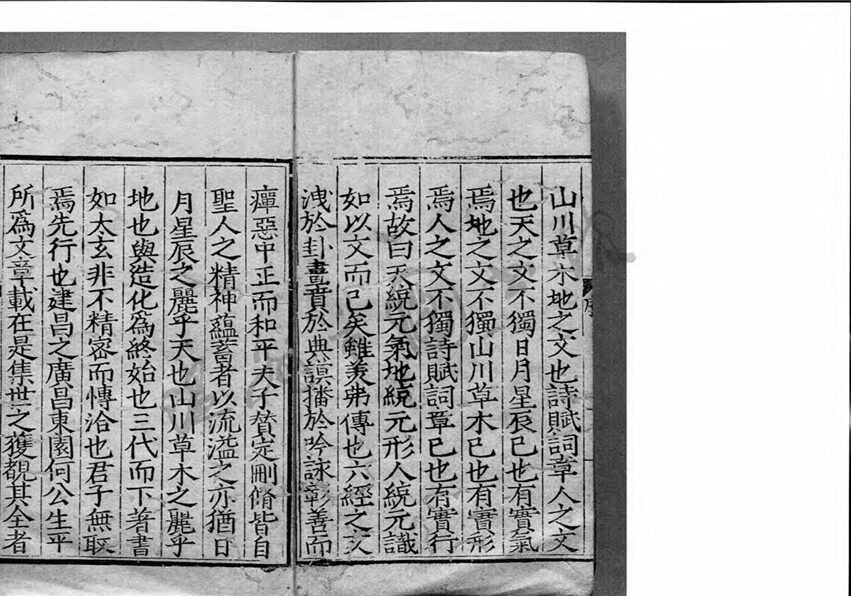 山川草木地之文也詩賦詞章人之文
也天之文不獨日月星辰已也有實氣
焉地之文不獨山川草木已也有實形
焉人之文不獨詩賦詞章已也有實行
焉故曰天統元氣地統元形人統元識
如以文而已矣雖美弗傳也六經之文
洩於卦畫賁於典謨播於吟詠彰善而
癉惡中正而和平夫子贊定刪脩皆自
聖人之精神蘊蓄者以流溢之亦猶日
月星辰之麗乎天也山川草木之麗乎
地也與造化為終始也三代而下著書
如太玄非不精密而愽洽也君子無取
焉先行也建昌之廣昌東園何公生平
所為文章載在是集世之獲覩其全者
序